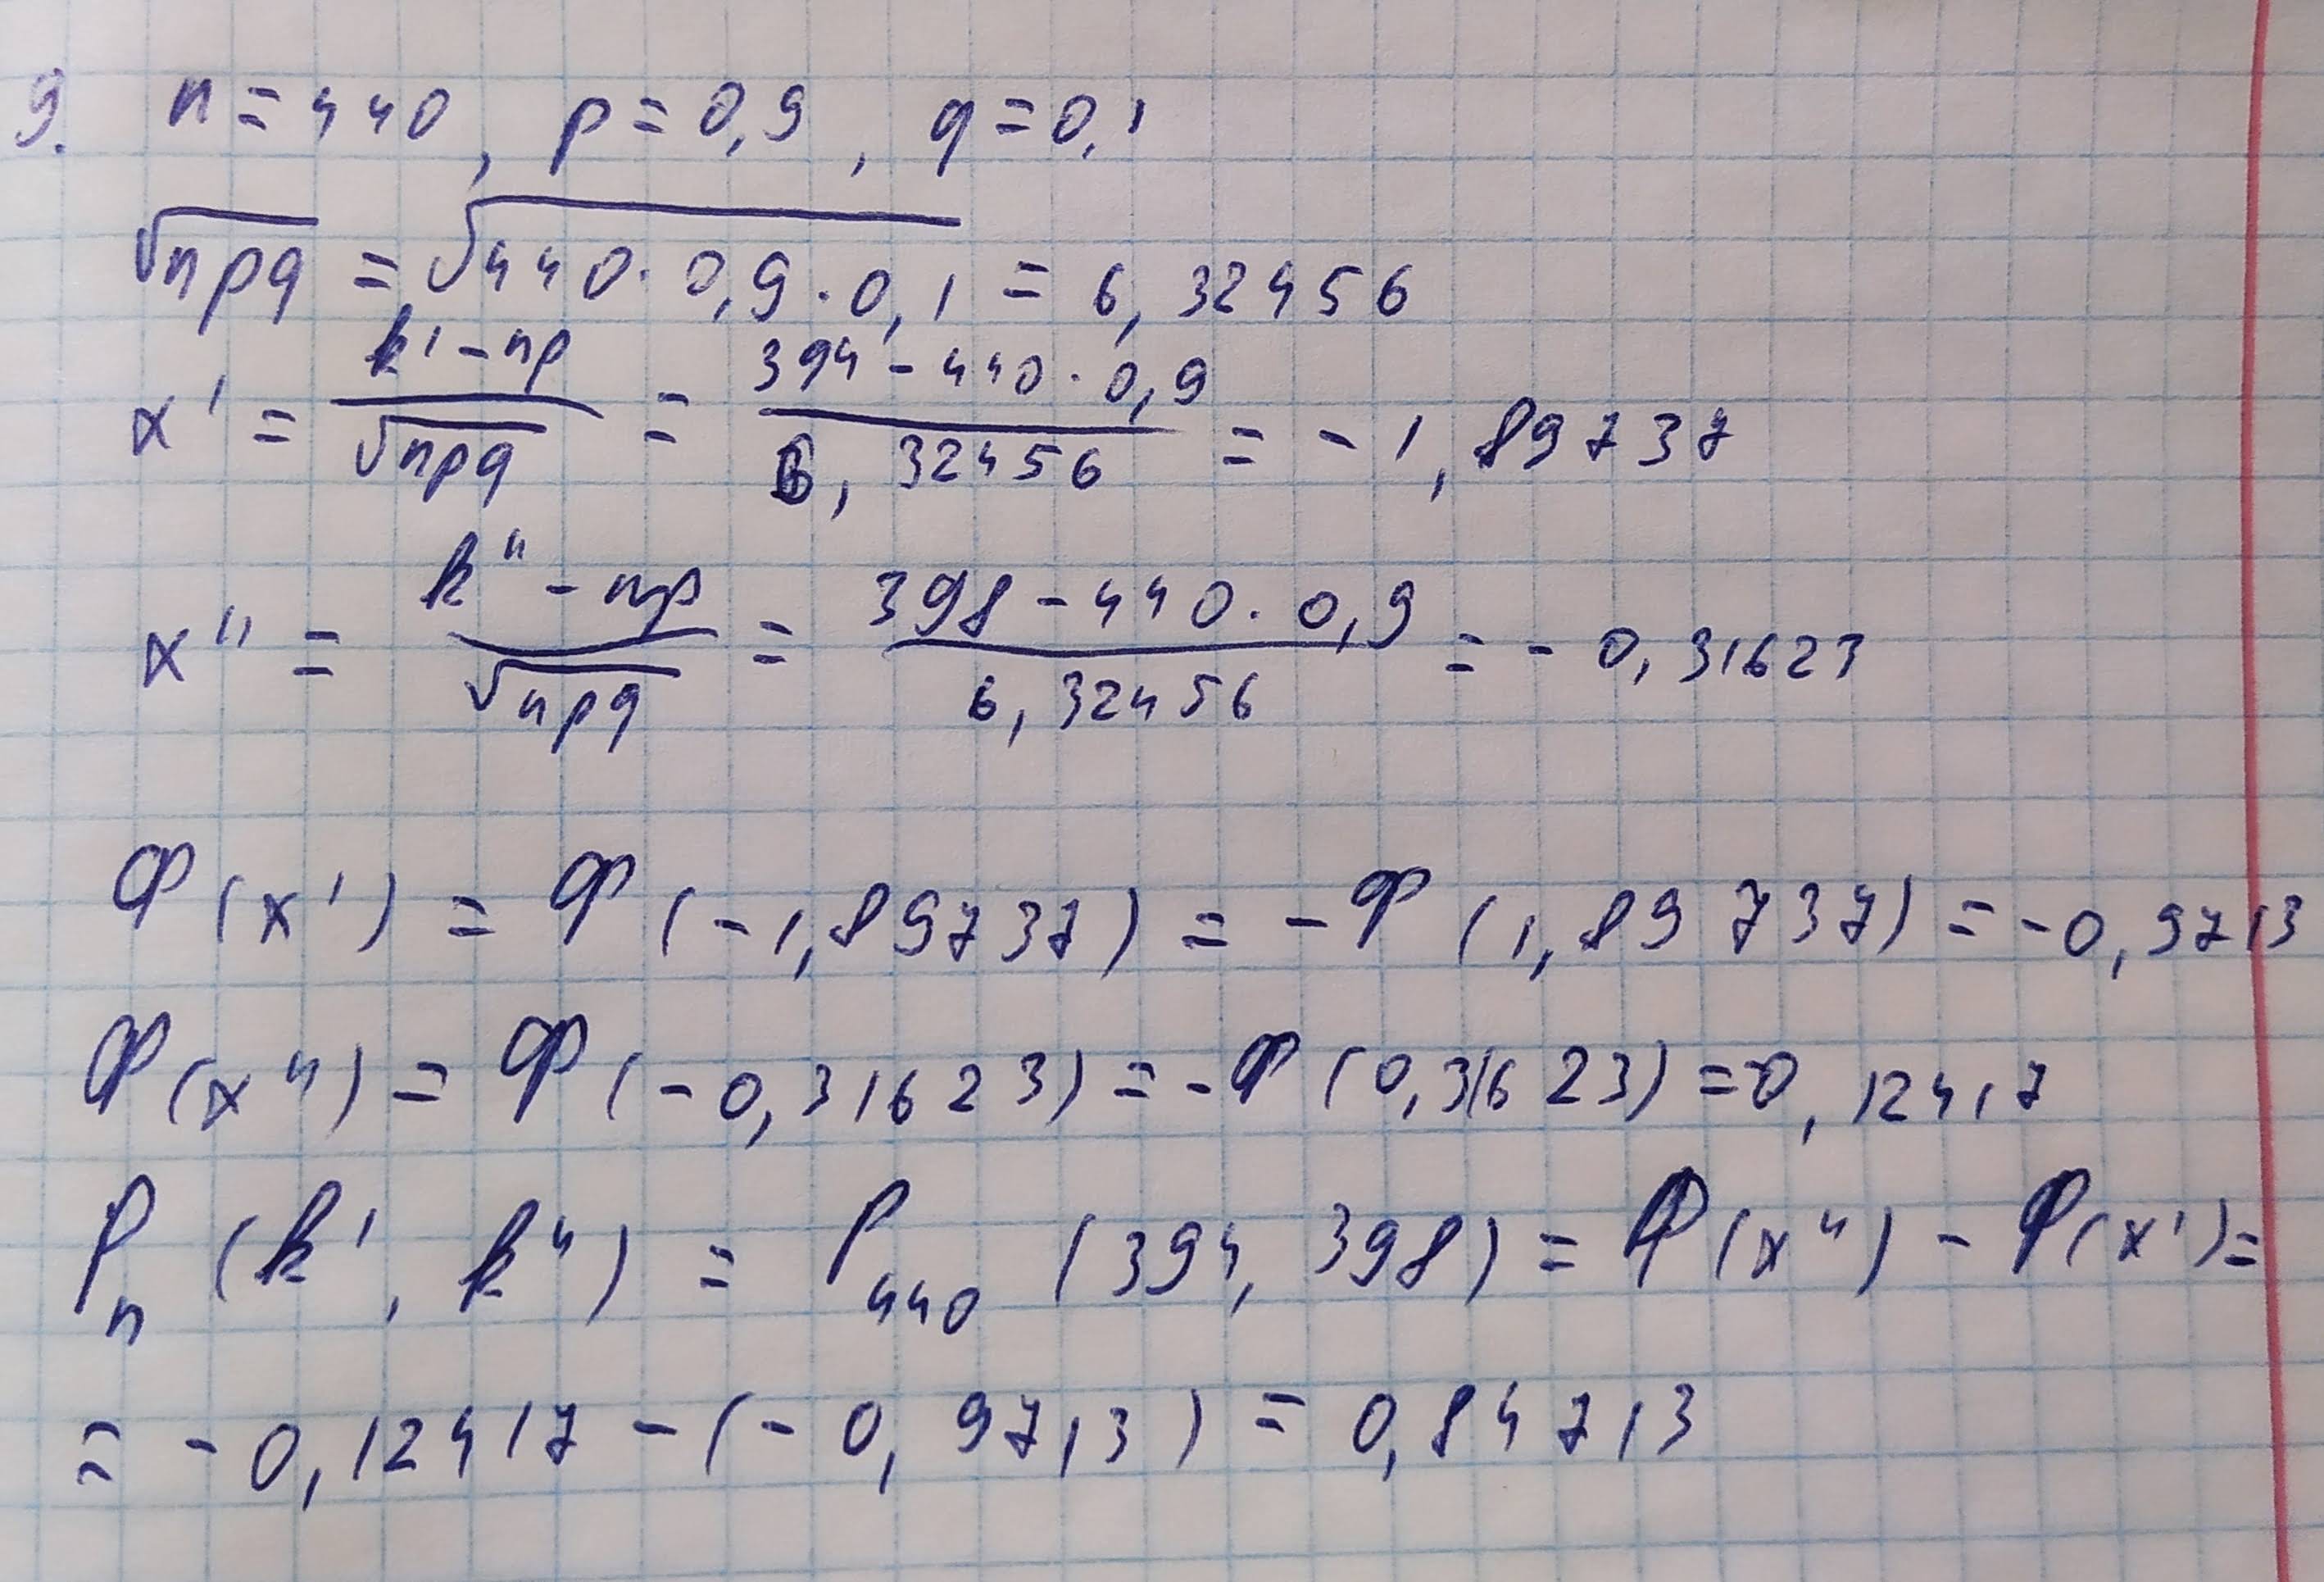 9. n = 440, p = 0,9, q = 0,1
√npq = √440·0,9·0,1 = 6,32456
x' = k'-np / √npq = 394-440·0,9 / 6,32456 = -1,89737
x'' = k''-np / √npq = 398-440·0,9 / 6,32456 = -0,31623
Ф(x') = Ф(-1,89737) = -Ф(1,89737) = -0,9713
Ф(x'') = Ф(-0,31623) = -Ф(0,31623) = 0,12417
Pn(k', k'') = P440(394, 398) = Ф(x'') - Ф(x') =
= -0,12417 - (-0,9713) = 0,84713